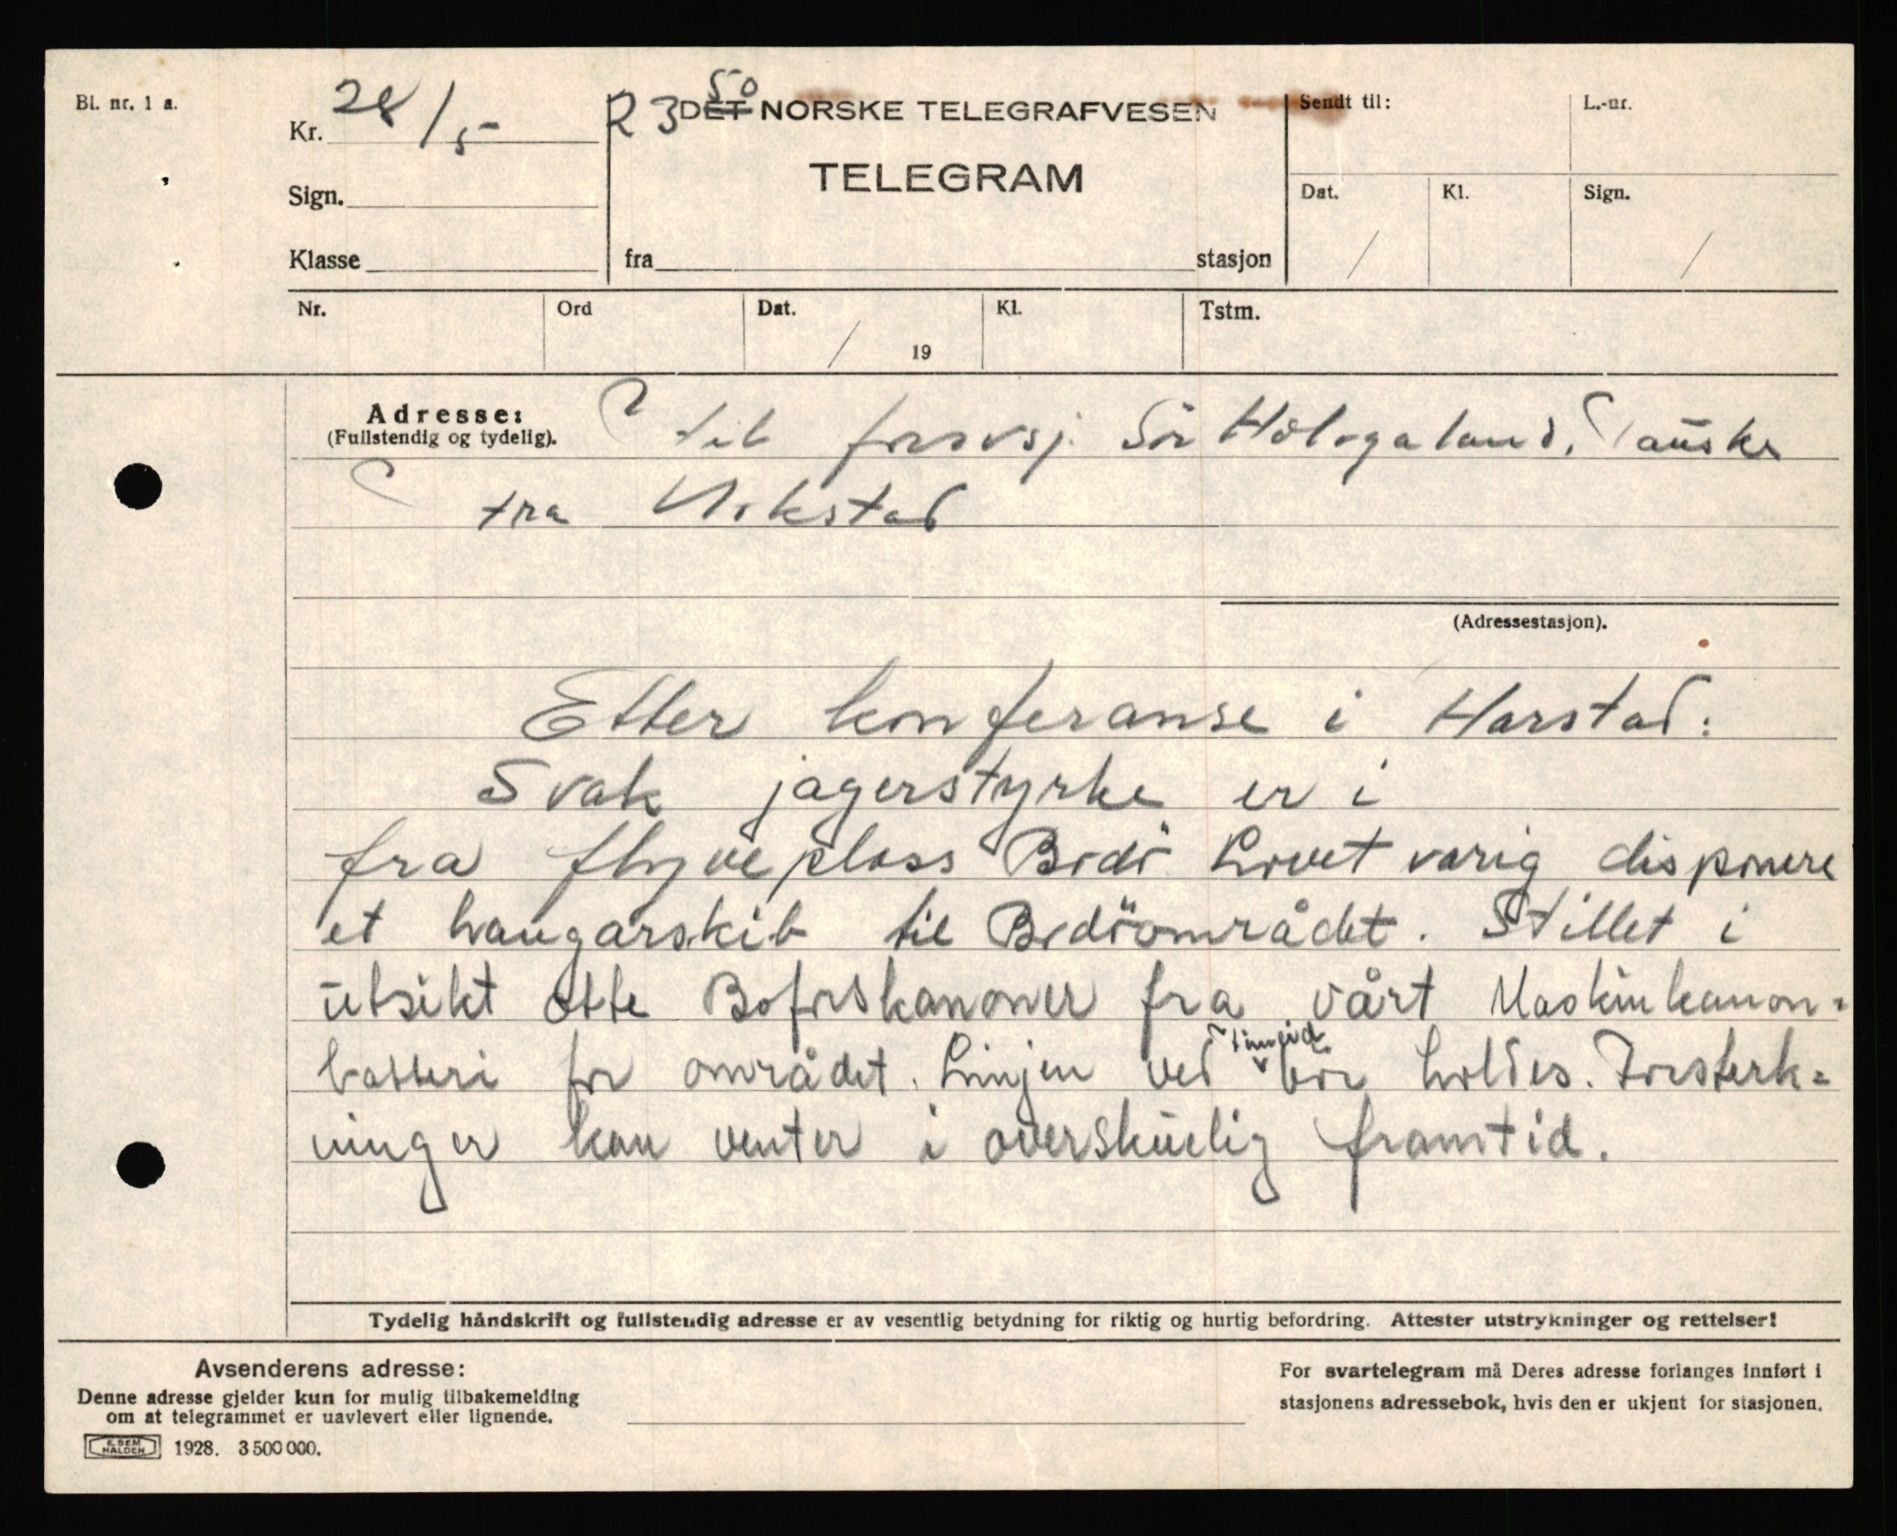 Bl. nr. 1 a.
Kr. 28/5
R 3 50
DET NORSKE TELEGRAFVESEN
TELEGRAM
Sendt til:
L.-nr.
Sign.
Dat.
Kl.
Sign.
Klasse
fra
stasjon
/
/
Nr.
Ord
Dat.
Kl.
Tstm.
/ 19
Adresse:
(Fullstendig og tydelig).
til forsvsj. Sör Hologaland,
fra
(Adressestasjon).
Etter konferanse i Harstad:
Svak jagerstyrke er i
fra flyveplass Bodö. Lovet varig disponere
et hangarskib til Bodöområdet. Stillet i
utsikt otte Boforskanoner fra vårt Maskinkanon=
batteri for området. Linjen ved bör holdes. Forsterk=
ninger kan venter i overskuelig framtid.
Tydelig håndskrift og fullstendig adresse er av vesentlig betydning for riktig og hurtig befordring. Attester utstrykninger og rettelser!
Avsenderens adresse:
Denne adresse gjelder kun for mulig tilbakemelding
om at telegrammet er uavlevert eller lignende.
E. SEM
HALDEN
1928. 3 500 000.
For svartelegram må Deres adresse forlanges innført i
stasjonens adressebok, hvis den er ukjent for stasjonen.